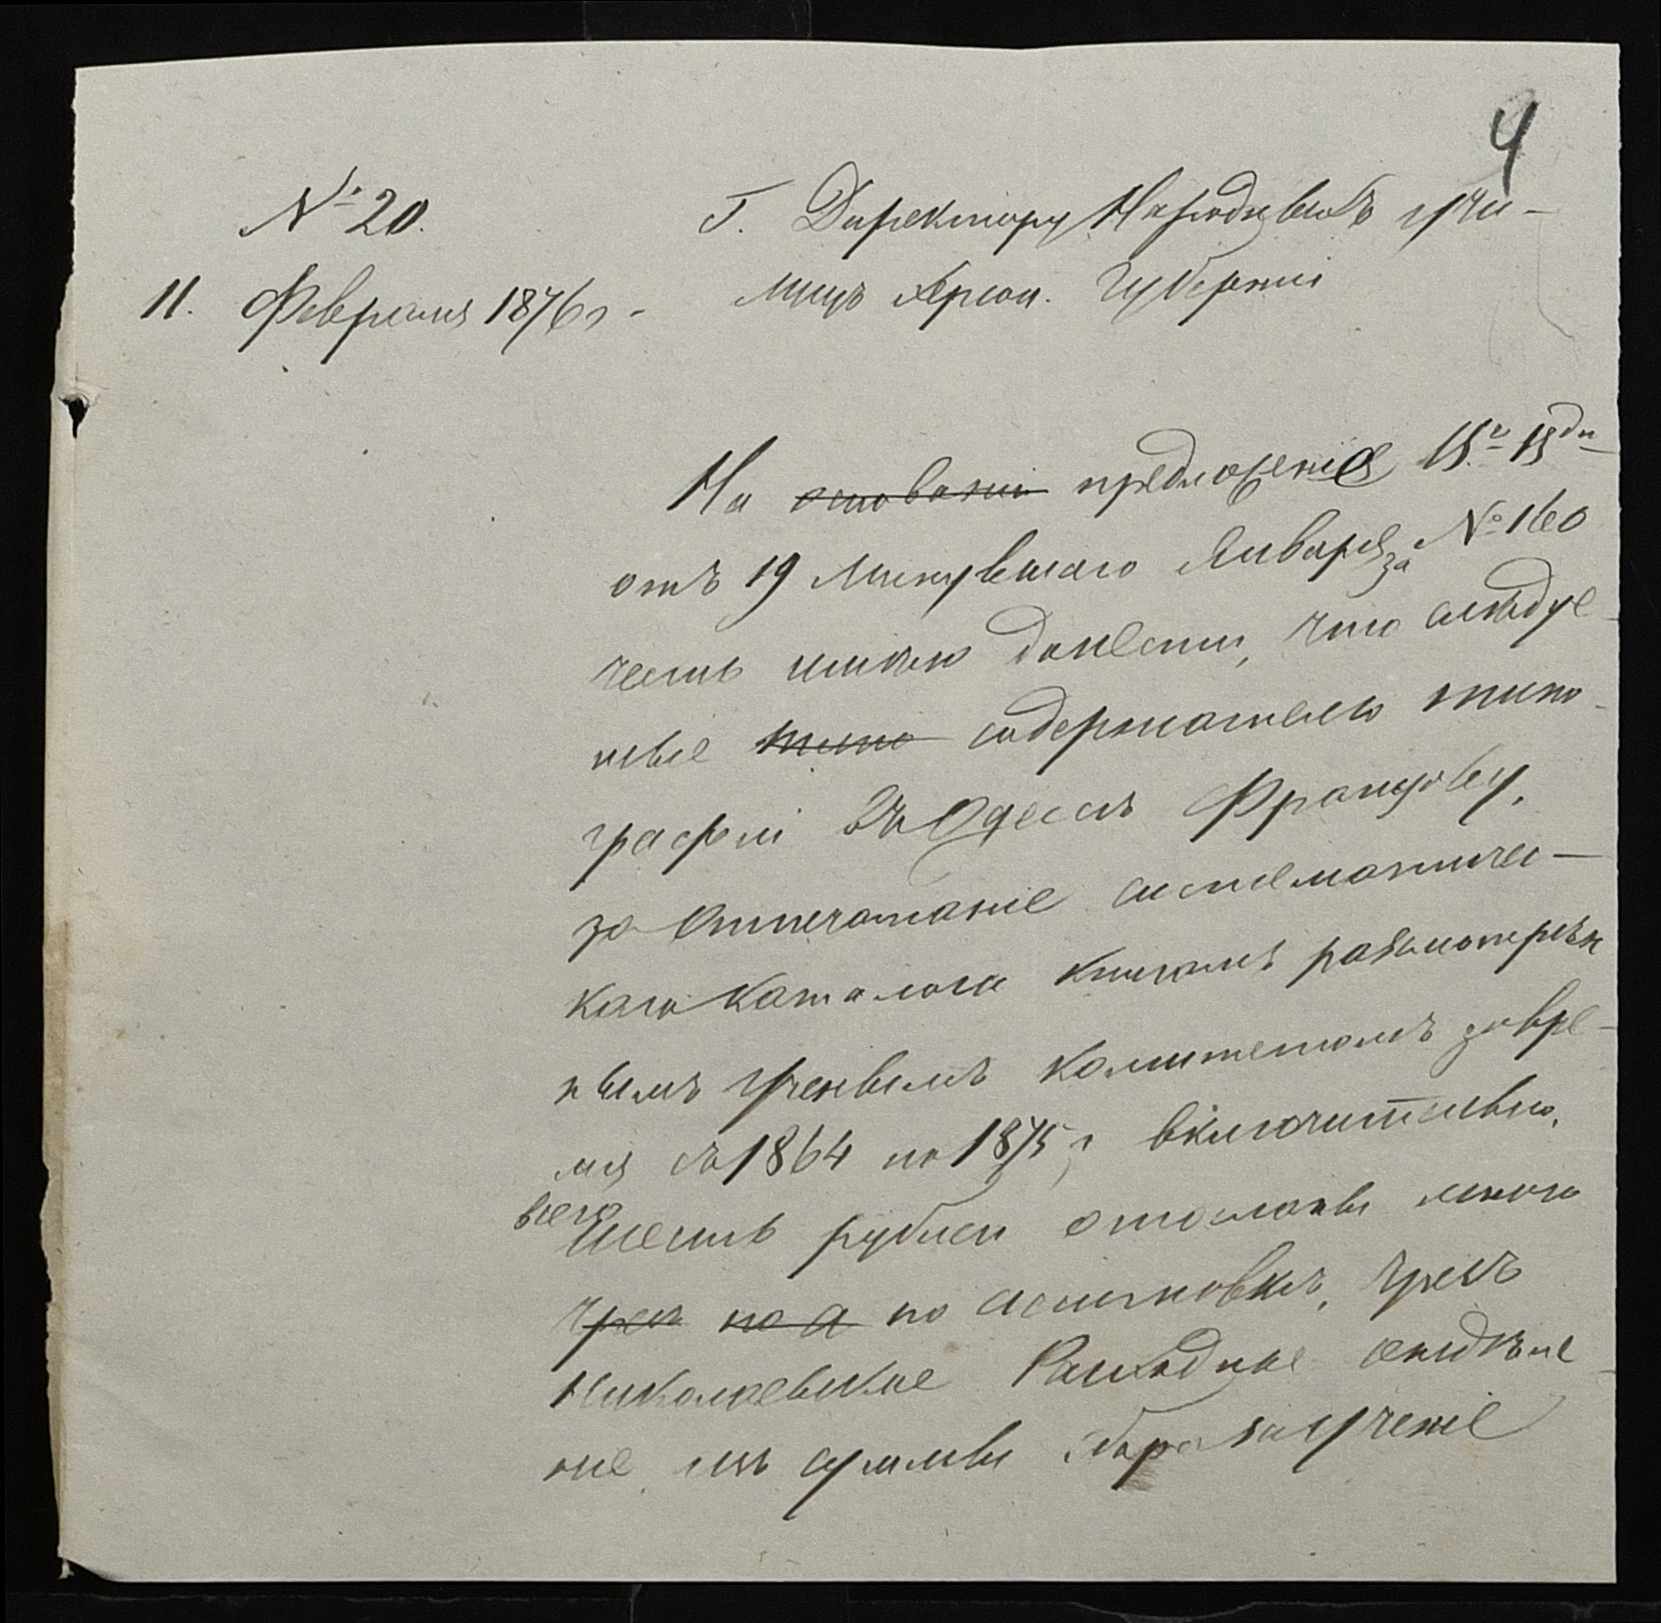 4
№ 20.
11. Февраля 1876 г.
Г. Директору Народныхъ учи-
лищъ Херсон. Губерніи
На основаніи предложенія
отъ 19 минувшаго Января за № 160
честь имѣю донести, что слѣдуе-
мые типо содержателю типо-
графіи въ Одессѣ Францову,
за отпечатаніе систематичес-
каго каталога книгамъ разсмотрѣн
нымъ Ученымъ Комитетомъ за вре-
мя съ 1864 по 1875 г включительно,
всего
шесть рублей отосланы мною
чрез по а по ассигновкѣ, чрезъ
Николаевское Расходное
ніе изъ суммы сбора за ученіе